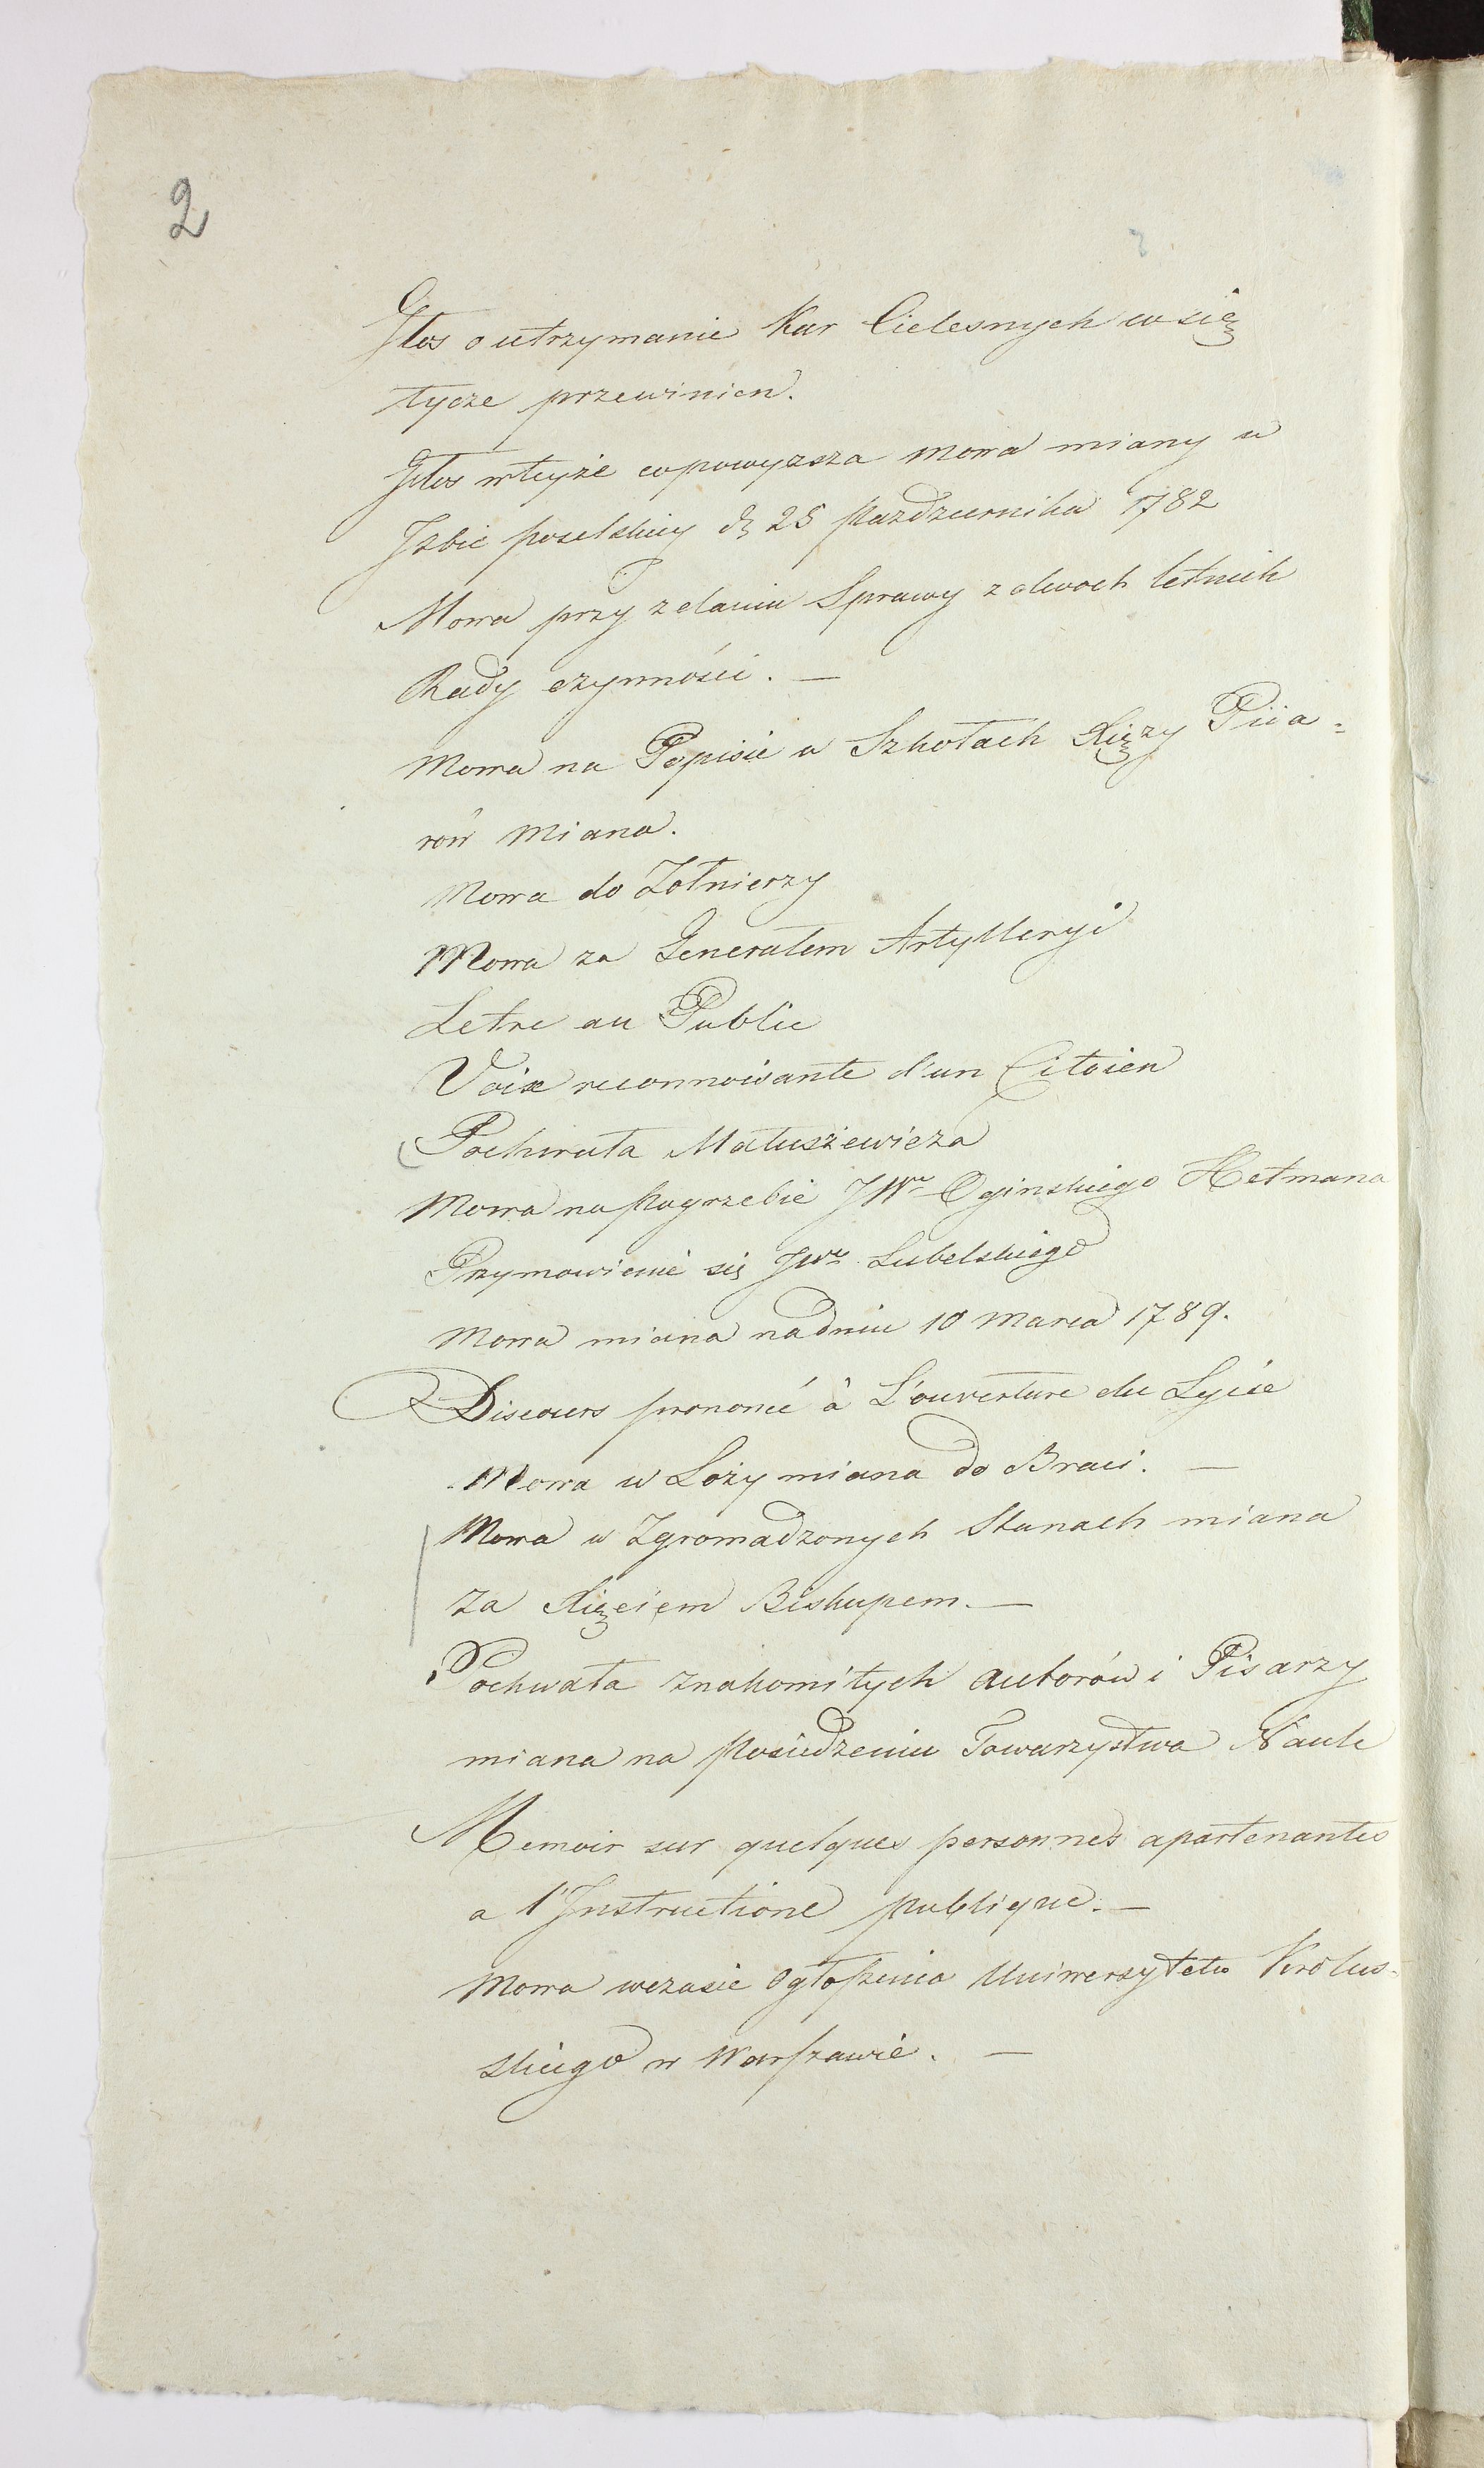 2
Głos o utrzymanie Kar Cielesnych co się
tycze przewinien.
Głos wteyże co powyzsza mowa miany w
Jzbie poselskiey dn 25 Pazdziernika 1782
Mowa przy zdaniu Sprawy z dwoch letnich
Rady czynności. —
Mowa na Popisie w Szkołach Xięzy Piia=
rów miana.
Mowa do Zołnierzy
Mowa za Generałem Artylleryi
Letre au Public
Voix reconnoisante d'un Citoien
Pochwała Matuszewicza
Mowa na Pogrzebie JWo Oginskiego Hetmana
Przymowienie się JWo Lubelskiego
Mowa miana na dniu 10 Marca 1789.
Discours prononcé à L'ouverture du Lycée
Mowa w Loży miana do Braci. —
Mowa w Zgromadzonych Stanach miana
za Xięciem Biskupem. —
Pochwała znakomitych autorów i Pisarzy
miana na Posiedzeniu Towarzystwa Nauk
Memoir sur quelques personnes apartenantes
a l'Instructione publique. —
Mowa wczasie Ogłoszenia Uniwersytetu Królew-
skiego w Warszawie. —